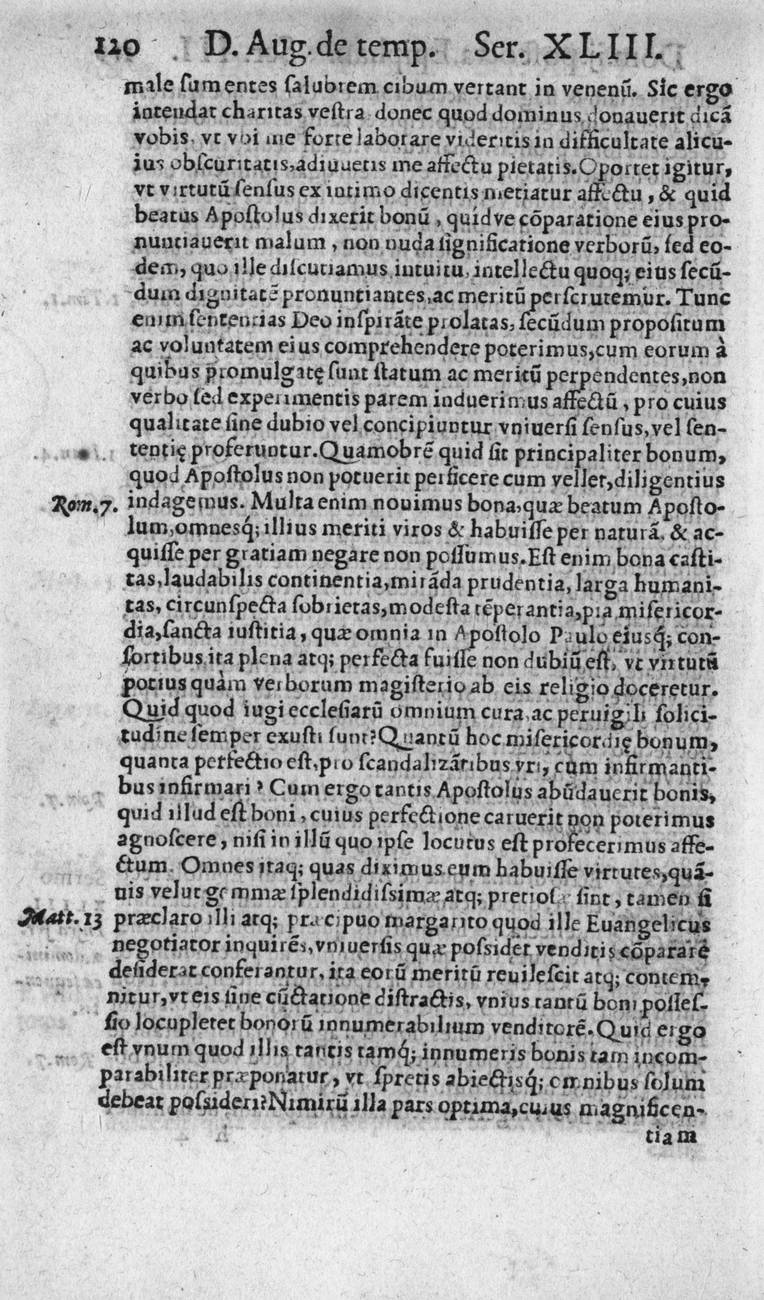 120 D. Aug. de temp. Ser. XLIII.
male ſumentes ſalubrem cibum vertant in venenũ. Sic ergo
intendat charitas veſtra donec quod dominus donauerit dicã
vobis, vt vbi me forte laborare videritis in difficultate alicu-
ius obſcuritatis, adiuuetis me affectu pietatis. Oportet igitur,
vt virtutũ ſenſus ex intimo dicentis metiatur affectu, & quid
beatus Apoſtolus dixerit bonũ, quidve cõparatione eius pro-
nuntiauerit malum, non nuda ſignificatione verborũ, ſed eo-
dem, quo ille diſcutiamus intuitu, intellectu quoq; eius ſecũ-
dum dignitatẽ pronuntiantes, ac meritũ perſcrutemur. Tunc
enim ſententias Deo inſpirãte prolatas, ſecũdum propoſitum
ac voluntatem eius comprehendere poterimus, cum eorum à
quibus promulgatę ſunt ſtatum ac meritũ perpendentes, non
verbo ſed experimentis parem induerimus affectũ, pro cuius
qualitate ſine dubio vel concipiuntur vniuerſi ſenſus, vel ſen-
tentię proferuntur. Quamobrẽ quid ſit principaliter bonum,
quod Apoſtolus non potuerit perficere cum vellet, diligentius
Rom. 7. indagemus. Multa enim nouimus bona, quæ beatum Apoſto-
lum, omnesq́; illius meriti viros & habuiſſe per naturã, & ac-
quiſſe per gratiam negare non poſſumus. Eſt enim bona caſti-
tas, laudabilis continentia, mirãda prudentia, larga humani-
tas, circunſpecta ſobrietas, modeſta tẽperantia, pia miſericor-
dia, ſancta iuſtitia, quæ omnia in Apoſtolo Paulo eiusq́; con-
ſortibus ita plena atq; perfecta fuiſſe non dubiũ eſt, vt virtutũ
potius quàm verborum magiſterio ab eis religio doceretur.
Quid quod iugi eccleſiarũ omnium cura, ac peruigili ſolici-
tudine ſemper exuſti ſunt? Quantũ hoc miſericordię bonum,
quanta perfectio eſt, pro ſcandalizãtibus vri, cum infirmanti-
bus infirmari? Cum ergo tantis Apoſtolus abũdauerit bonis,
quid illud eſt boni, cuius perfectione caruerit non poterimus
agnoſcere, niſi in illũ quo ipſe locutus eſt profecerimus affe-
ctum. Omnes itaq; quas diximus eum habuiſſe virtutes, quã-
uis velut gemmæ ſplendidiſsimæ atq; pretioſæ ſint, tamen ſi
Matt. 13 præclaro illi atq; præcipuo margarito quod ille Euangelicus
negotiator inquirẽs, vniuerſis quæ poſsidet venditis cõparare
deſiderat conferantur, ita eorũ meritũ reuileſcit atq; contem-
nitur, vt eis ſine cũctatione diſtractis, vnius tantũ boni poſſeſ-
ſio locupletet bonorũ innumerabilium venditorẽ. Quid ergo
eſt vnum quod illis tantis tamq́; innumeris bonis tam incom-
parabiliter præponatur, vt ſpretis abiectisq́; omnibus ſolum
debeat poſsideri? Nimirũ illa pars optima, cuius magnificen-
tiam